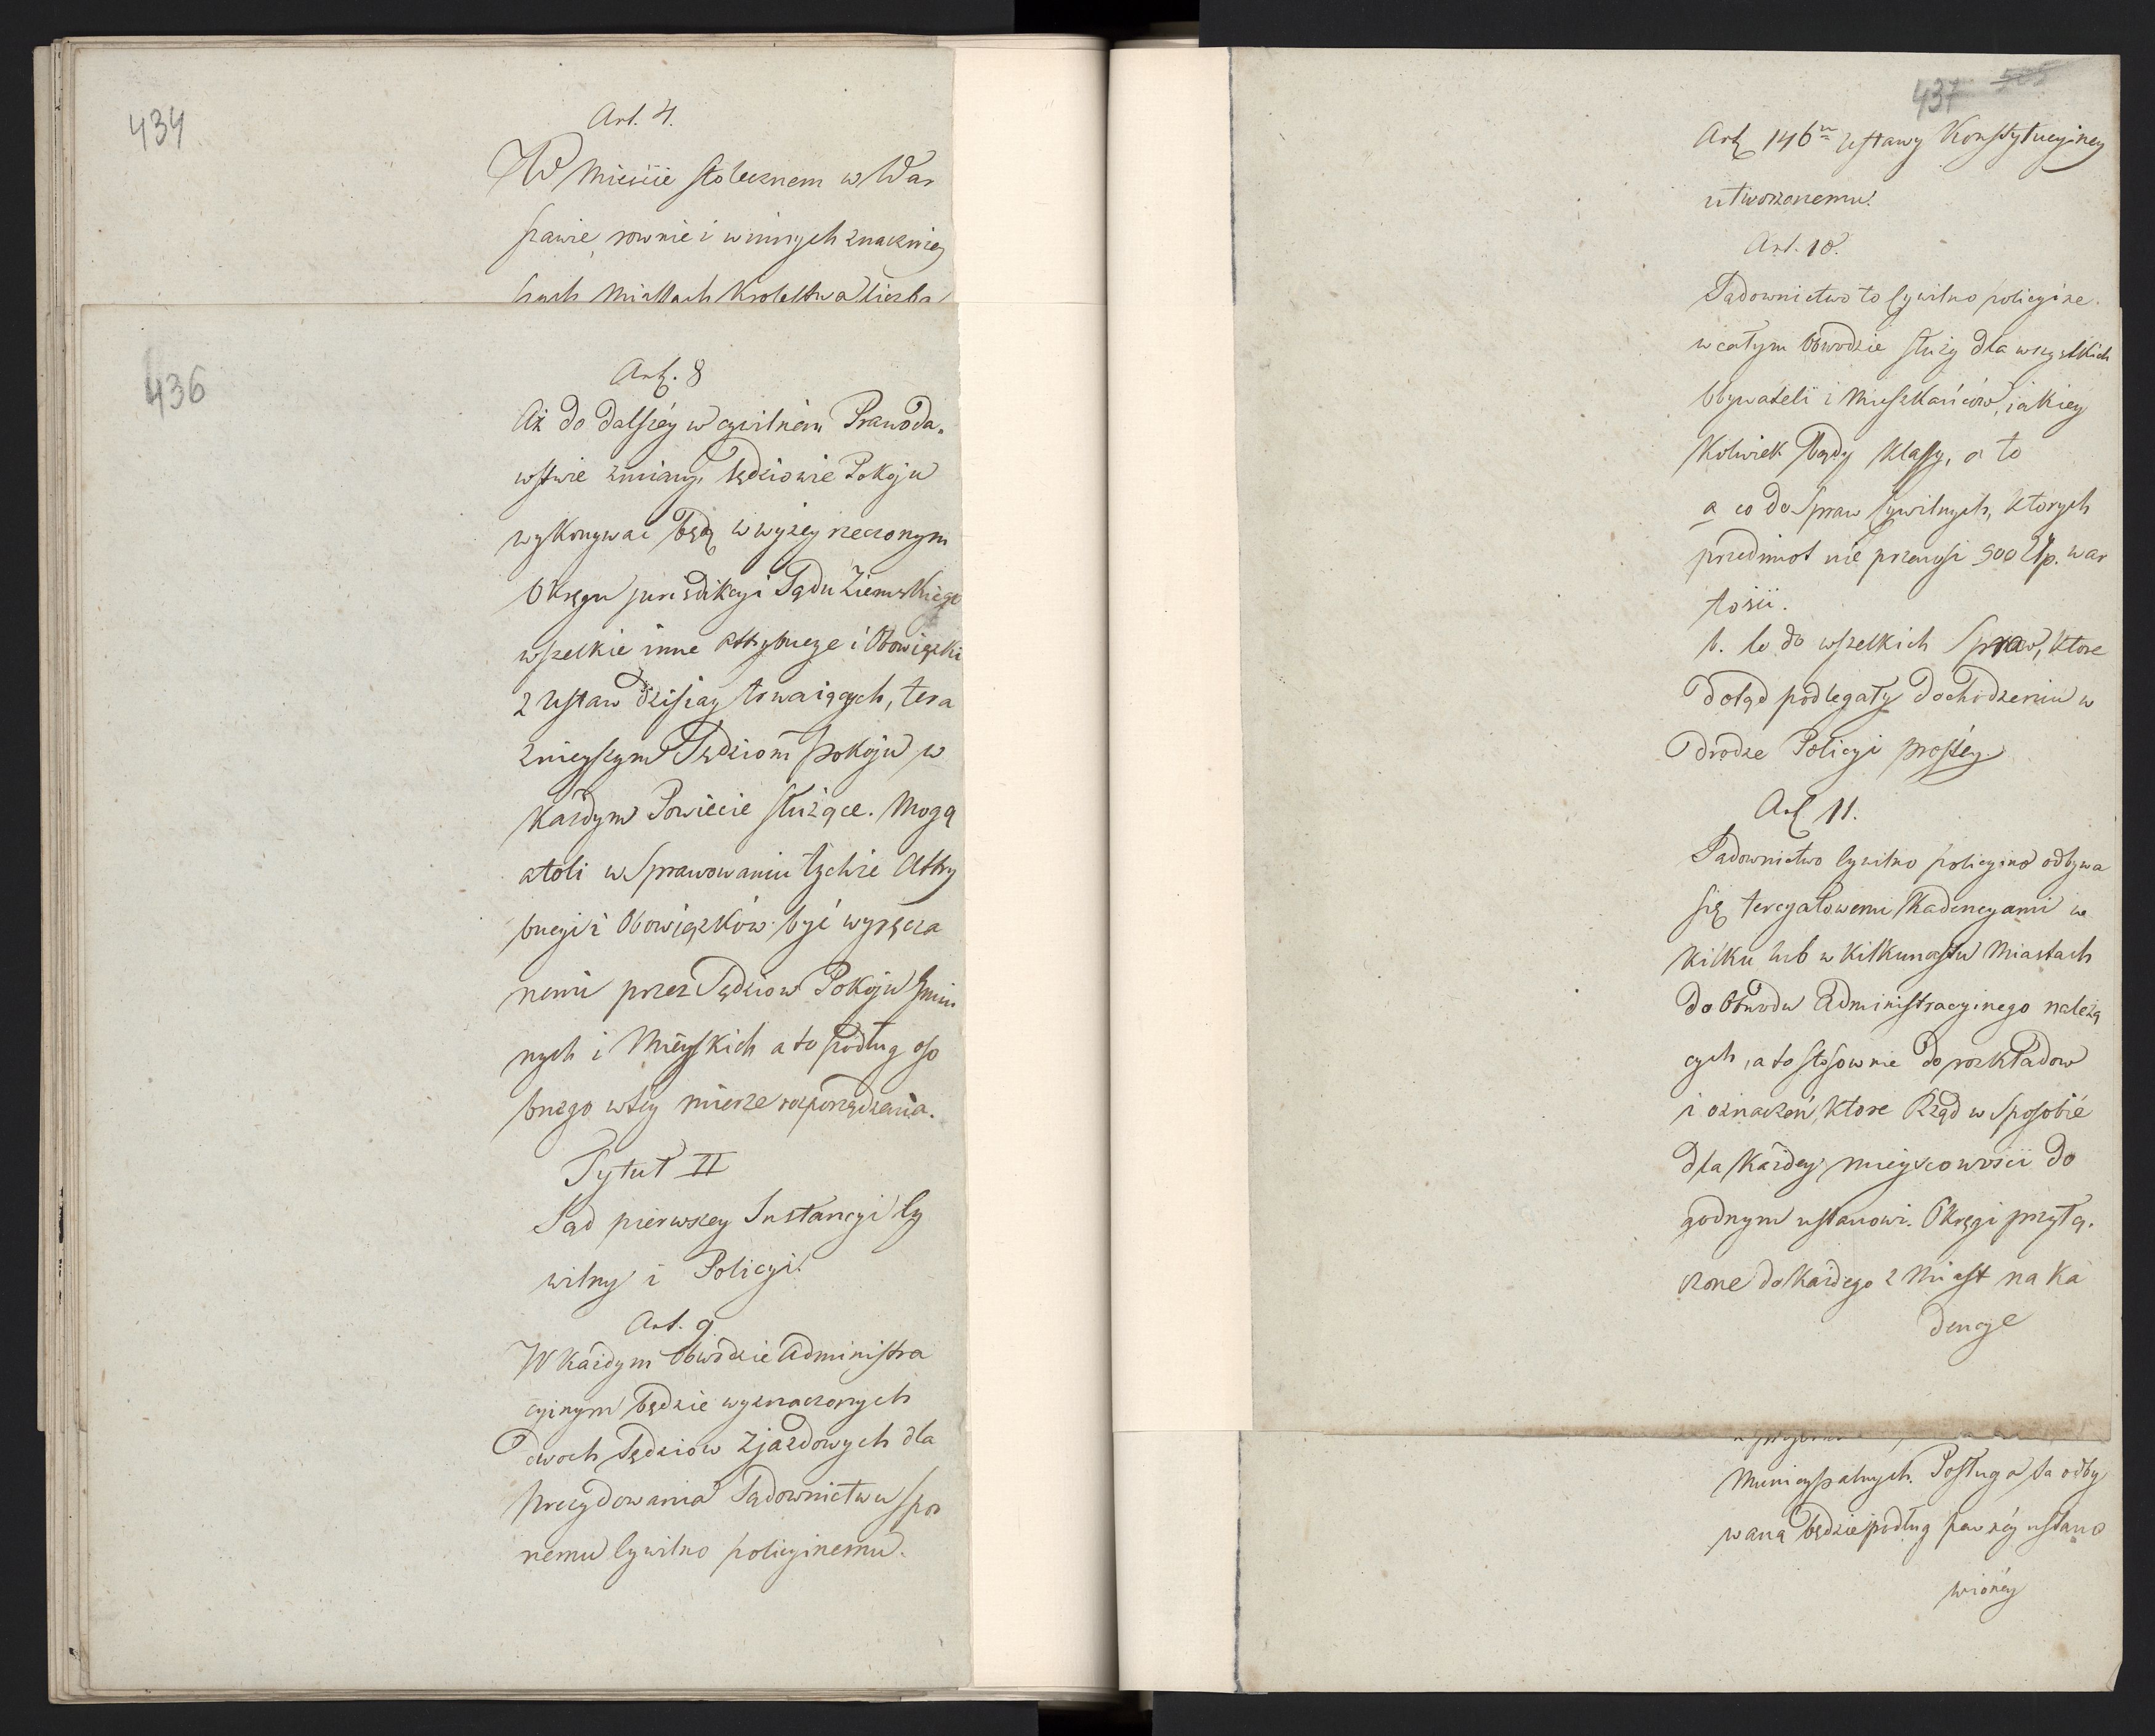 434
Art. 4.
W Mieście stołecznem w War
szawie, rownie i w innych znaczniey
szych Miastach Krolestwa liczba
436
Art. 8
Aż do dalszéy w cywilném Prawoda„
wstwie zmiany, Sędziowie Pokoju
wykonywać będą w wyżey rzeczonym
Okręgu jurisdikcyi Sądu Ziemskiego
wszelkie inne attrybucye i Obowiązki
z Ustaw dzisiay trwaiących, tera
znieyszym Sędziom pokoju w
każdym Powiecie służące. Mogą
atoli w Sprawowaniu tychże Attry
bucyi i Obowiązków być wyręcza
nemi przez Sędziow Pokoju Gmin
nych i Mieyskich a to podług oso
bnego w téy mierze rozporządzenia.
Tytuł II
Sąd pierwszey Instancyi Cy
wilny i Policyi.
Art. 9
W każdym Obwodzie Administra
cyinym będzie wyznaczonych
dwoch Sędziow Zjazdowych dla
prezydowania Sądownictwu spor
nemu Cywilno policyinemu.
437 505
Art 146 Ustawy Konstytucyiney
utworzonemu.
Art. 10.
Sądownictwo to Cywilno policyine
w całym Obwodzie służy dla wszystkich
Obywateli i Mieszkańców, iakiey
kolwiek bądź klassy, a to
a co do Spraw Cywilnych, ktorych
przedmiot nie przenosi 500 Złp. war
tości.
b. Co do wszelkich Spraw, ktore
dotąd podlegały dochodzeniu w
drodze Policyi prostéy.
Art 11.
Sądownictwo Cywilno policyine odbywa
się tercyałowemi Kadencyami w
kilku lub w kilkunastu Miastach
do Obwodu Administracyinego należą
cych, a to stosownie do rozkładow
i oznaczeń, ktore Rząd w Sposobie
dla każdey mieyscowości do
godnym ustanowi. Okręgi przyłą„
czone do każdego z Miast na Ka
dencye
Municypalnych. Posługa ta odby
waną będzie podług pewnéy ustano
wionéy